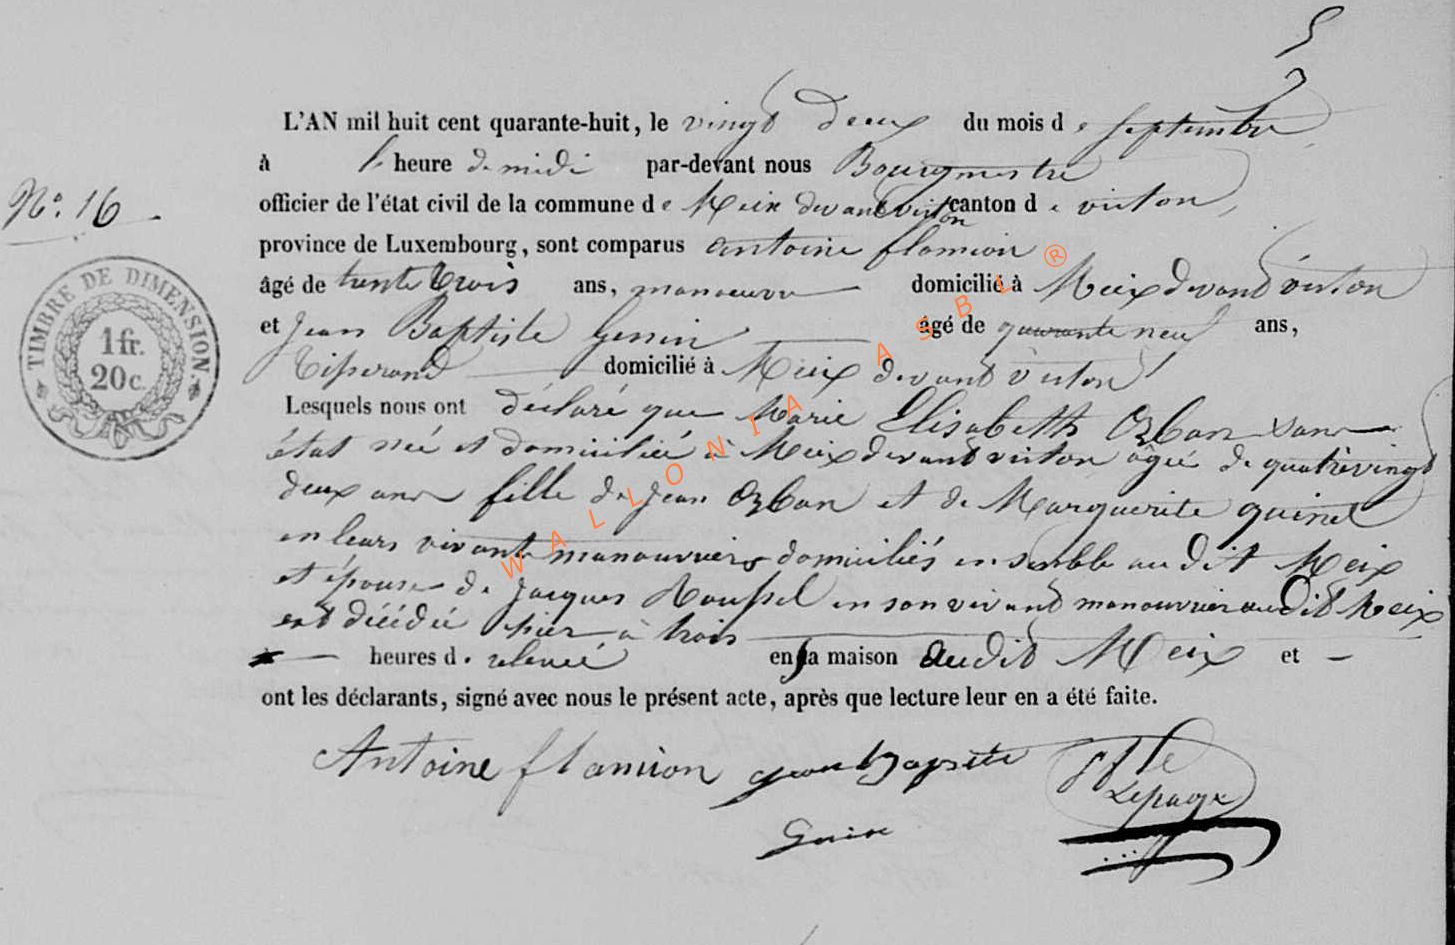 L'AN mil huit cent quarante-huit, le vingt deux du mois de septembre
à l' heure de midi par-devant nous Bourgmestre
N.° 16
officier de l'état civil de la commune de Meix devant virton canton de virton,
province de Luxembourg, sont comparus antoine flamion
âgé de trente trois ans, manoeuvre domicilié à Meix devant virton
et Jean Baptiste Genin âgé de quarante neuf ans,
Tisserand domicilié à Meix devant virton
Lesquels nous ont déclaré que Marie Elisabeth Ozban sans
état née et domiciliée à Meix devant virton agée de quatrevingt
deux ans fille de Jean Ozban et de Marguerite quinet
en leurs vivants manouvriers domiciliés ensemble au dit Meix
et épouse de Jacques Roussel en son vivant manouvrier audit Meix
est décédée hier à trois
heures de relevée en sa maison audit Meix et
ont les déclarants, signé avec nous le présent acte, après que lecture leur en a été faite.
Antoine flamion Jean Bapsite
Lepage
TIMBRE DE DIMENSION.
1 fr.
20 c.
WALLONIA ASBL ®